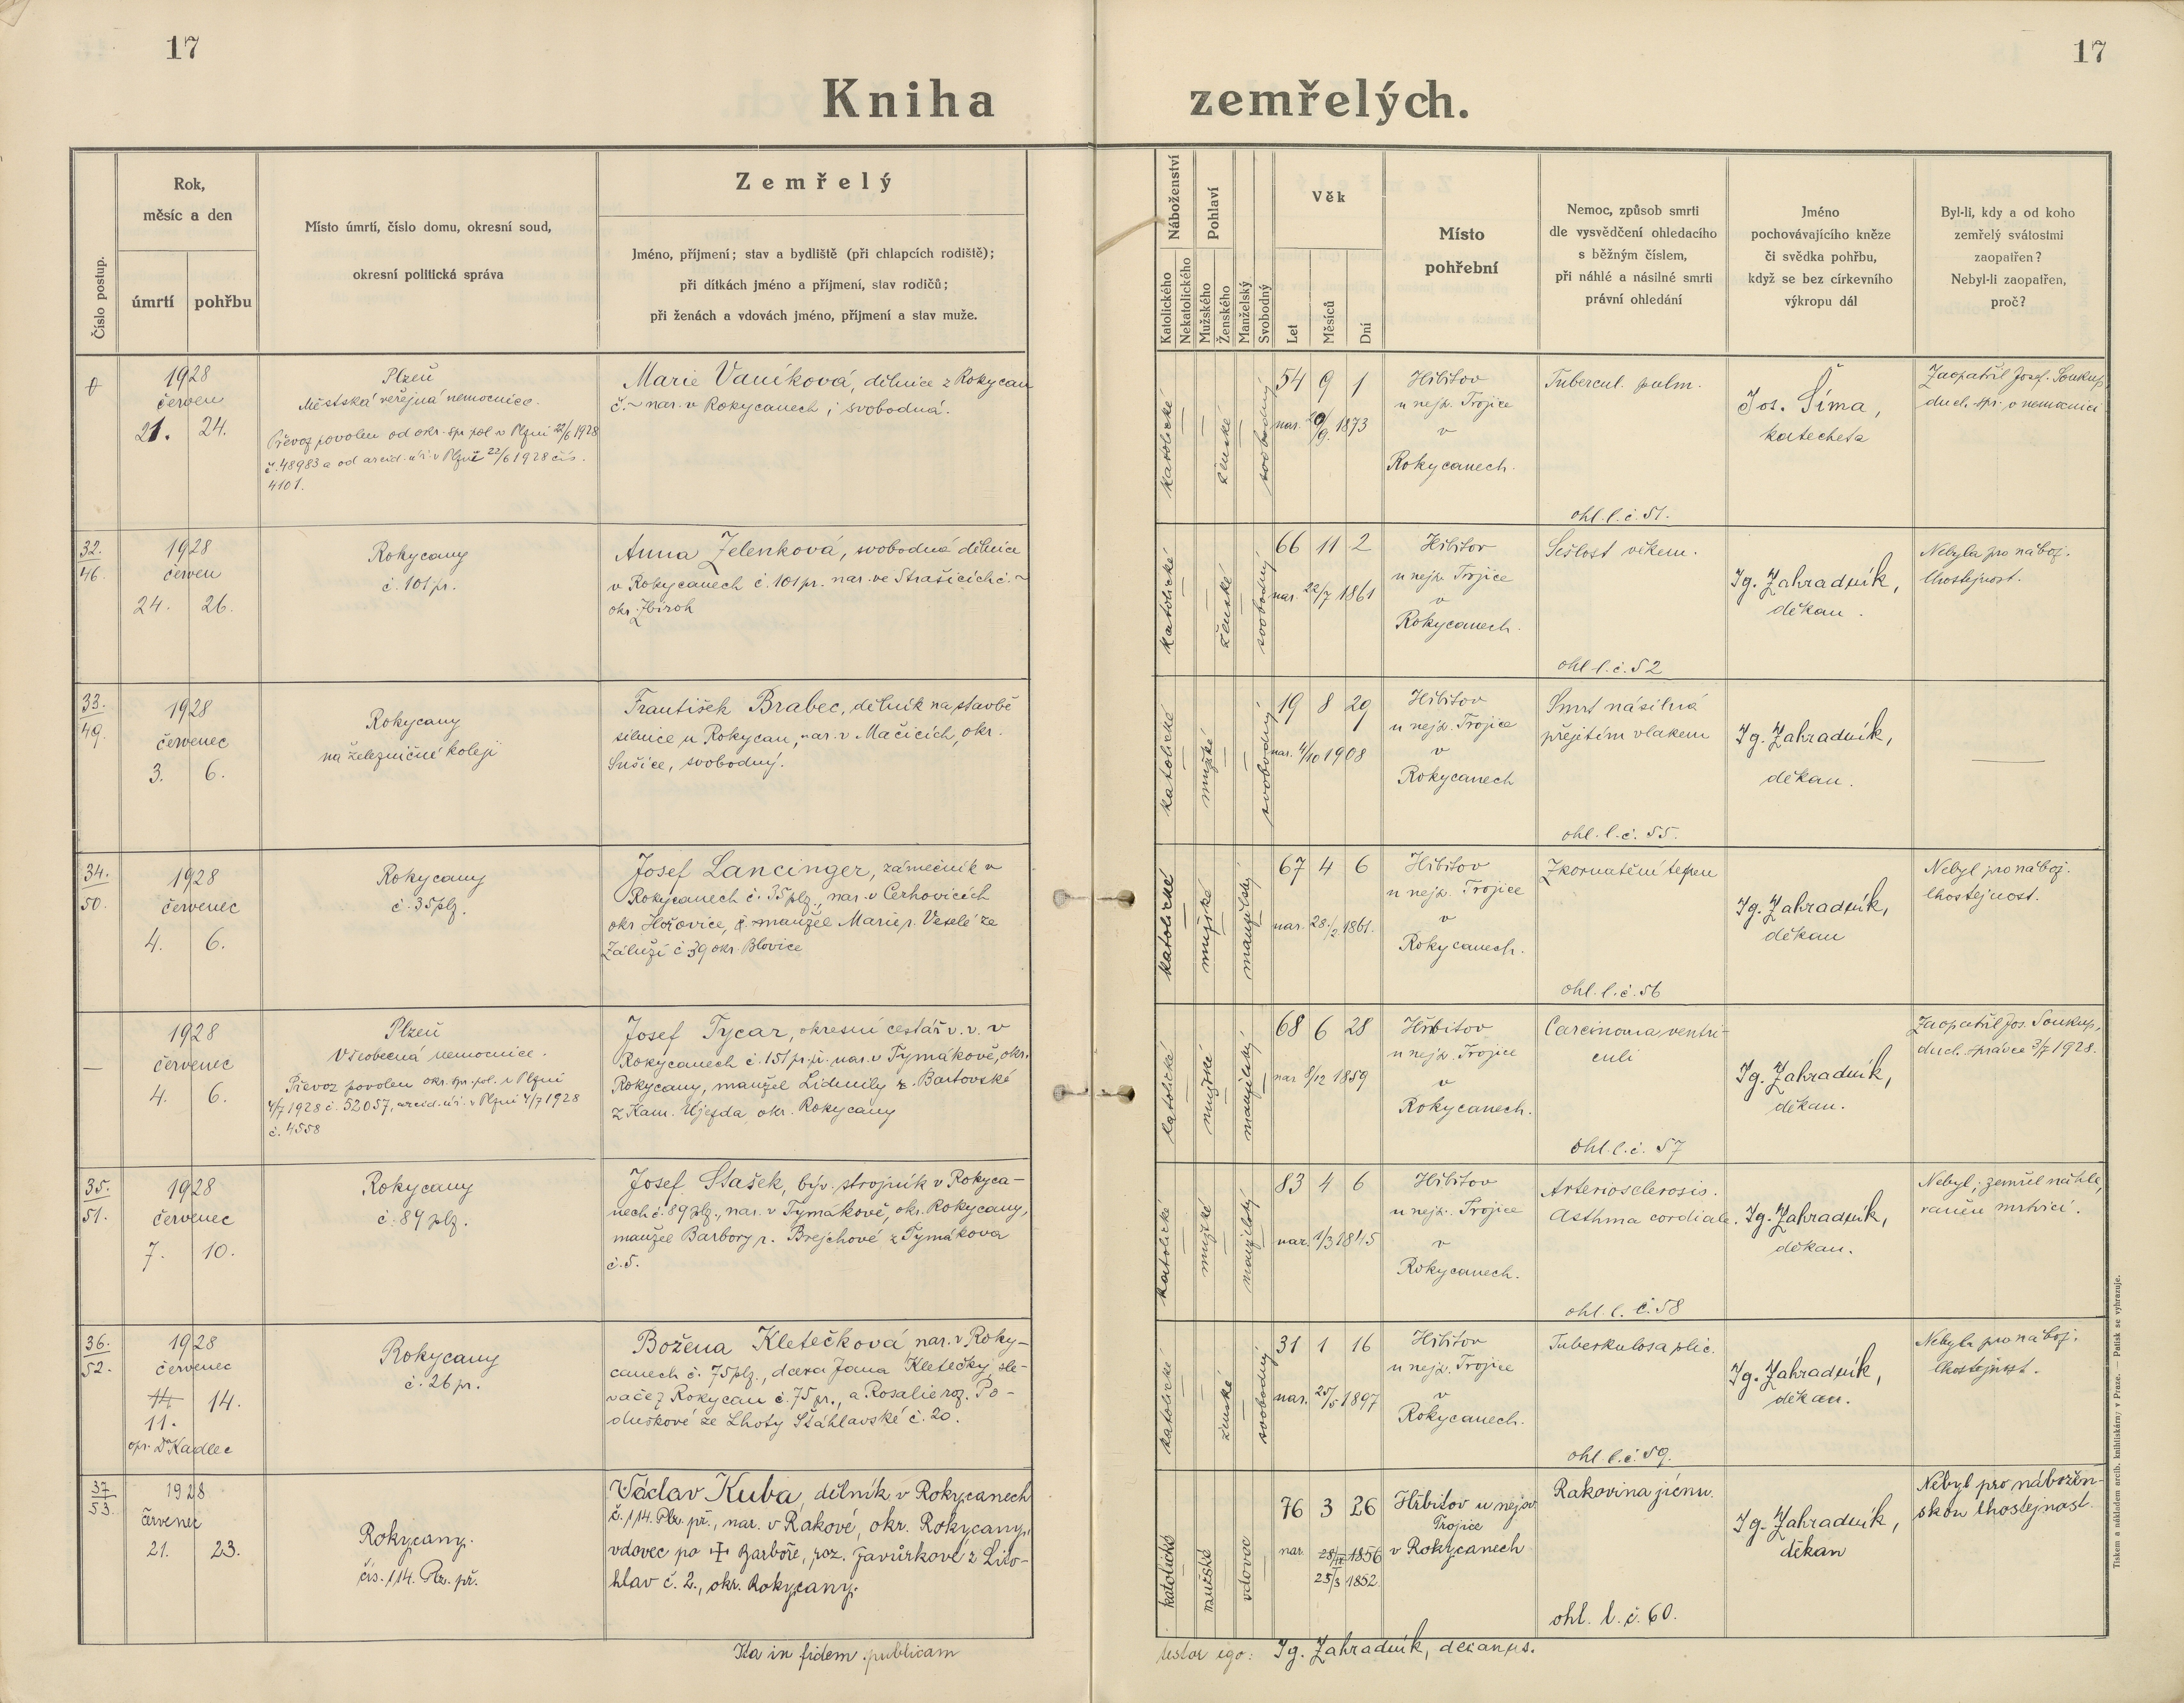 17
17
Kniha zemřelých.
Číslo postup.
Rok,
měsíc a den
úmrtí
pohřbu
Místo úmrtí, číslo domu, okresní soud,
okresní politická správa
Zemřelý
Jméno, příjmení; stav a bydliště (při chlapcích rodiště);
při dítkách jméno a příjmení, stav rodičů;
při ženách a vdovách jméno, příjmení a stav muže.
Náboženství
Katolického
Nekatolického
Pohlaví
Mužského
Ženského
Manželský
Svobodný
Věk
Let
Měsíců
Dní
Místo
pohřební
Nemoc, způsob smrti
dle vysvědčení ohledacího
s běžným číslem,
při náhlé a násilné smrti
právní ohledání
Jméno
pochovávajícího kněze
či svědka pohřbu,
když se bez církevního
výkropu dál
Byl-li, kdy a od koho
zemřelý svátostmi
zaopatřen?
Nebyl-li zaopatřen,
proč?
1928
červen
21. 24.
Plzeň
Městská veřejná nemocnice.
Převoz povolen od okr. spr. pol. v Plzni 22/6 1928
č. 48983 a od arcid. úř. v Plzni 22/6 1928 čís.
4101.
Marie Vaníková, dělnice z Rokycan
č. ~ nar. v Rokycanech, svobodná.
katolické
ženské
svobodný
54 9 1
nar. 20/9. 1873
Hřbitov
u nejsv. Trojice
v
Rokycanech.
Tubercul. pulm.
ohl. l. č. 51.
Jos. Šíma,
katecheta
Zaopatřil Josef Soukup,
duch. spr. v nemocnici
32.
46.
1928
červen
24. 26.
Rokycany
č. 101 pr.
Anna Zelenková, svobodná dělnice
v Rokycanech č. 101 pr. nar. ve Strašicích č. ~
okr. Zbiroh
katolické
ženské
svobodný
66 11 2
nar. 22/7 1861
Hřbitov
u nejsv. Trojice
v
Rokycanech.
Sešlost věkem.
ohl. l. č. 52
Ig. Zahradník,
děkan.
Nebyla pro nábož.
lhostejnost.
33.
49.
1928
červenec
3. 6.
Rokycany
na železničné koleji
František Brabec, dělník na stavbě
silnice u Rokycan, nar. v Mačicích, okr.
Sušice, svobodný.
katolické
mužské
svobodný
19 8 29
nar. 4/10 1908
Hřbitov
u nejsv. Trojice
v
Rokycanech
Smrt násilná
přejetím vlakem
ohl. l. č. 55.
Ig. Zahradník,
děkan.
34.
50.
1928
červenec
4. 6.
Rokycany
č. 35 plz.
Josef Lancinger, zámečník v
Rokycanech č. 35 plz., nar. v Cerhovicích
okr. Hořovice, manžel Marie r. Veselé ze
Záluží č. 39 okr. Blovice
katolické
mužské
manželský
67 4 6
nar. 28./2 1861.
Hřbitov
u nejsv. Trojice
v
Rokycanech.
Zkornatění tepen
ohl. l. č. 56
Ig. Zahradník,
děkan
Nebyl pro nábož.
lhostejnost.
—
1928
červenec
4. 6.
Plzeň
Všeobecná nemocnice.
Převoz povolen okr. spr. pol. v Plzni
4/7 1928 č. 52057, arcid. úř. v Plzni 4/7 1928
č. 4558
Josef Tycar, okresní cestář v. v. v
Rokycanech č. 151 pr. p. nar. v Tymákově, okr.
Rokycany, manžel Lidmily r. Bartovské
z Kam. Újezda, okr. Rokycany
katolické
mužské
manželský
68 6 28
nar 8/12 1859
Hřbitov
u nejsv. Trojice
v
Rokycanech.
Carcinoma ventri-
culi
ohl. l. č. 57
Ig. Zahradník,
děkan.
Zaopatřil Jos. Soukup,
duch. správce 3/7 1928.
35.
51.
1928
červenec
7. 10.
Rokycany
č. 89 plz.
Josef Stašek, býv. strojník v Rokyca-
nech č. 89 plz., nar. v Tymákově, okr. Rokycany,
manžel Barbory r. Brejchové z Tymákova
č. 5.
katolické
mužské
manželský
83 4 6
nar. 1/3 1845
Hřbitov
u nejsv. Trojice
v
Rokycanech.
Arteriosclerosis.
Asthma cordiale.
ohl. l. č. 58
Ig. Zahradník,
děkan.
Nebyl; zemřel náhle,
raněn mrtvicí.
36.
52.
1928
červenec
14 14.
11.
opr. Dr Kadlec
Rokycany
č. 26 pr.
Božena Kletečková nar. v Roky-
canech č. 75 plz., dcera Jana Kletečky, slé-
vače z Rokycan č. 75 pr., a Rosalie roz. Po-
duškové ze Lhoty Šťáhlavské č. 20.
katolické
ženské
svobodný
31 1 16
nar. 25/5 1897
Hřbitov
u nejsv. Trojice
v
Rokycanech.
Tuberkulosa plic.
ohl. l. č. 59.
Ig. Zahradník,
děkan.
Nebyla pro nábož.
lhostejnost.
37
53.
1928
červenec
21. 23.
Rokycany.
čís. 114. Plz. př.
Václav Kuba, dělník v Rokycanech
č. 114. Plz. př., nar. v Rakové, okr. Rokycany,
vdovec po ✝ Barboře, roz. Javůrkové z Lito-
hlav č. 2., okr. Rokycany.
katolické
mužské
vdovec
76 3 26
nar. 28/II 1856
25/3 1852.
Hřbitov u nejsv.
Trojice
v Rokycanech
Rakovina jícnu.
ohl. l. č. 60.
Ig. Zahradník,
děkan
Nebyl pro nábožen-
skou lhostejnost.
Ita in fidem publicam
testor ego: Ig. Zahradník, decanus.
Tiskem a nákladem arcib. knihtiskárny v Praze. — Patisk se vyhrazuje.